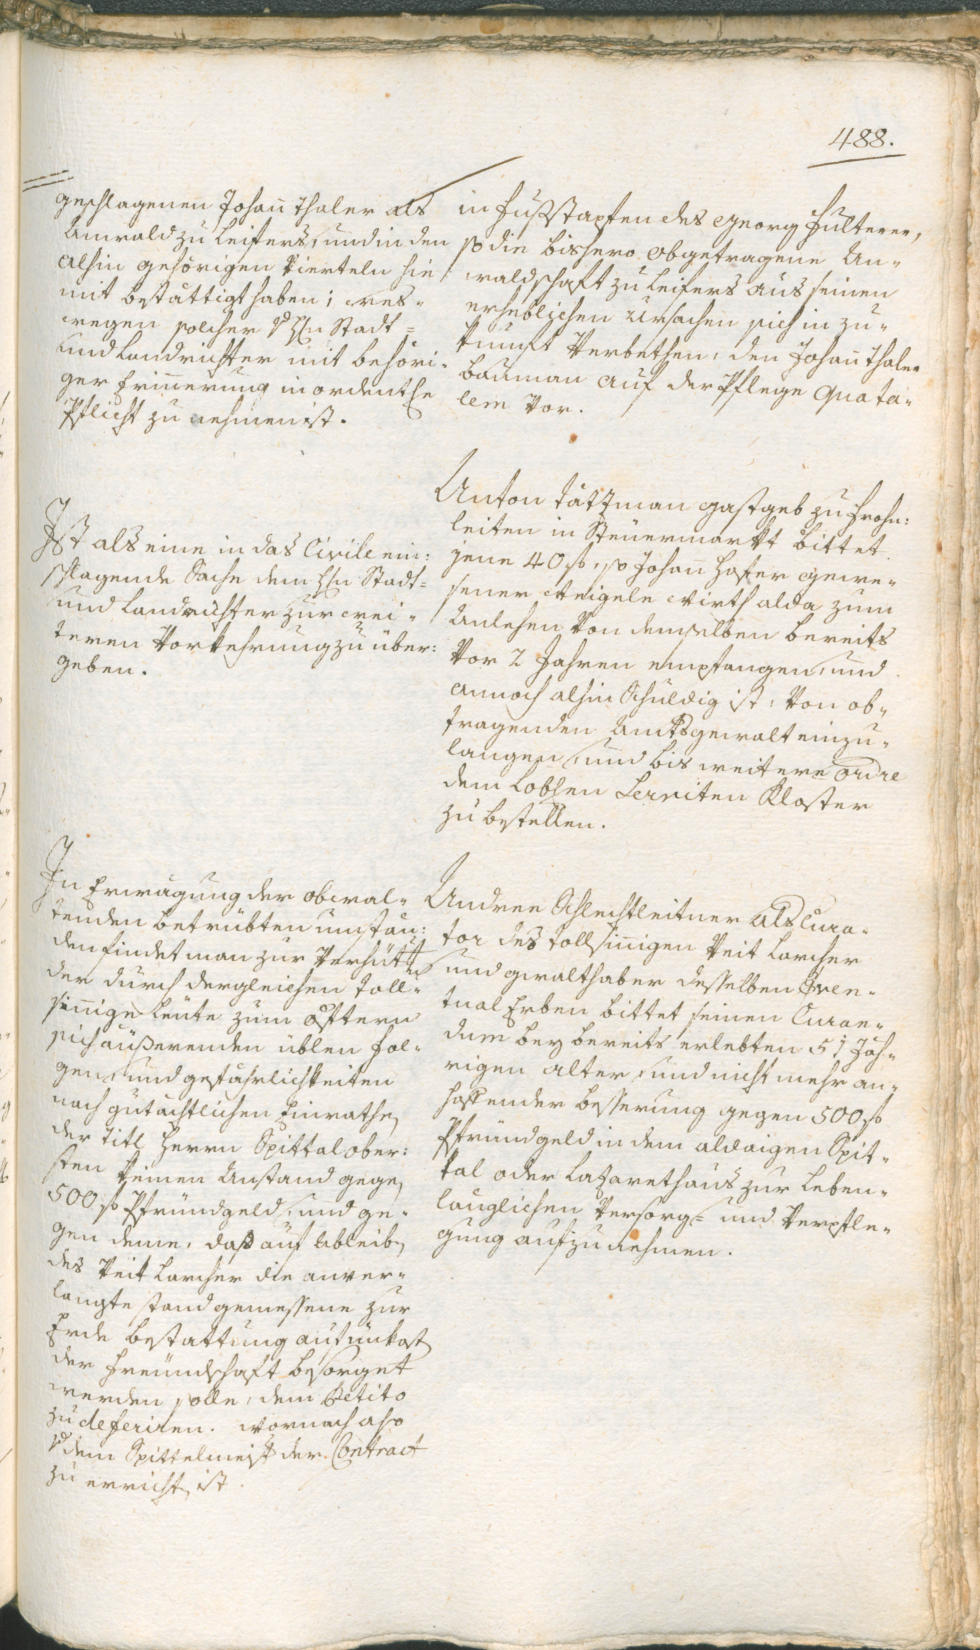 488.
geschlagenen Johann Thaler als
Anwald zu Leifers, und in den
alhin gehörigen Vierteln hie
mit bestättigt haben; wes-
wegen solcher Hrn Stadt-
und Landrichter mit behöri-
ger Erinnerung in ordentliche
Pflicht zu nehmen ist.
in Fußstapfen des Georg Fulterer,
so die bishero obgetragene An-
waldschaft zu Leifers aus seinen
erheblichen Ursachen sich in zu-
kunft Verbethen, den Johann Thaler
Bauman auf der Pflege quata-
lem vor.
Ist als eine in das Civile ein-
schlagende Sache dem Hrn Stadt-
und Landrichter zur wei-
teren Vorkehrung zu über-
geben.
Anton Tättman Gastgeb zu Frohn-
leiten in Steüermarkt bittet
jene 40 f, so Johan Hofer gewe-
sener Weigele Wirth alda zum
Anlehen von demselben bereits
vor 2 Jahren empfangen, und
annoch alhin schuldig ist, von ob-
tragenden Amtsgewalt einzu-
langen, und bis weitere ordre
dem Loblen Serviten Kloster
zu bestellen.
In Erwägung der obwal-
tenden betrübten umstän-
den findet man zur Verhütt
der durch dergleichen toll-
sinnige Leüte zum öfftern
sich äußerenden üblen fol-
gen, und gefährlichkeiten
nach gutächtlichen Einrathe
der titl Herrn Spittalober-
sten keinen Anstand gegen
500 f Pfründgeld, und ge-
gen deme, daß auf ableiben
des Veit Larcher die anver-
langte standgemessene zur
Erde bestattung auf unkosten
der Freündschaft besorget
werden solle, dem Petito
zu deferiren. Wornach also
dem Spittelmeister der Contract
zu errichten ist.
Andree Schlechtleitner als Cura-
tor des tollsinnigen Veit Larcher
und gwalthaber desselben Even-
tual Erben bittet seinen Curan-
dum bey bereits erlebten 51 Jäh-
rigen alter, und nicht mehr an-
hoffender besserung gegen 500 f
Pfründgeld in dem aldaigen Spit-
tal oder Lazarethaus zur leben-
lauglichen Versorg- und Verpfle-
gung aufzunehmen.